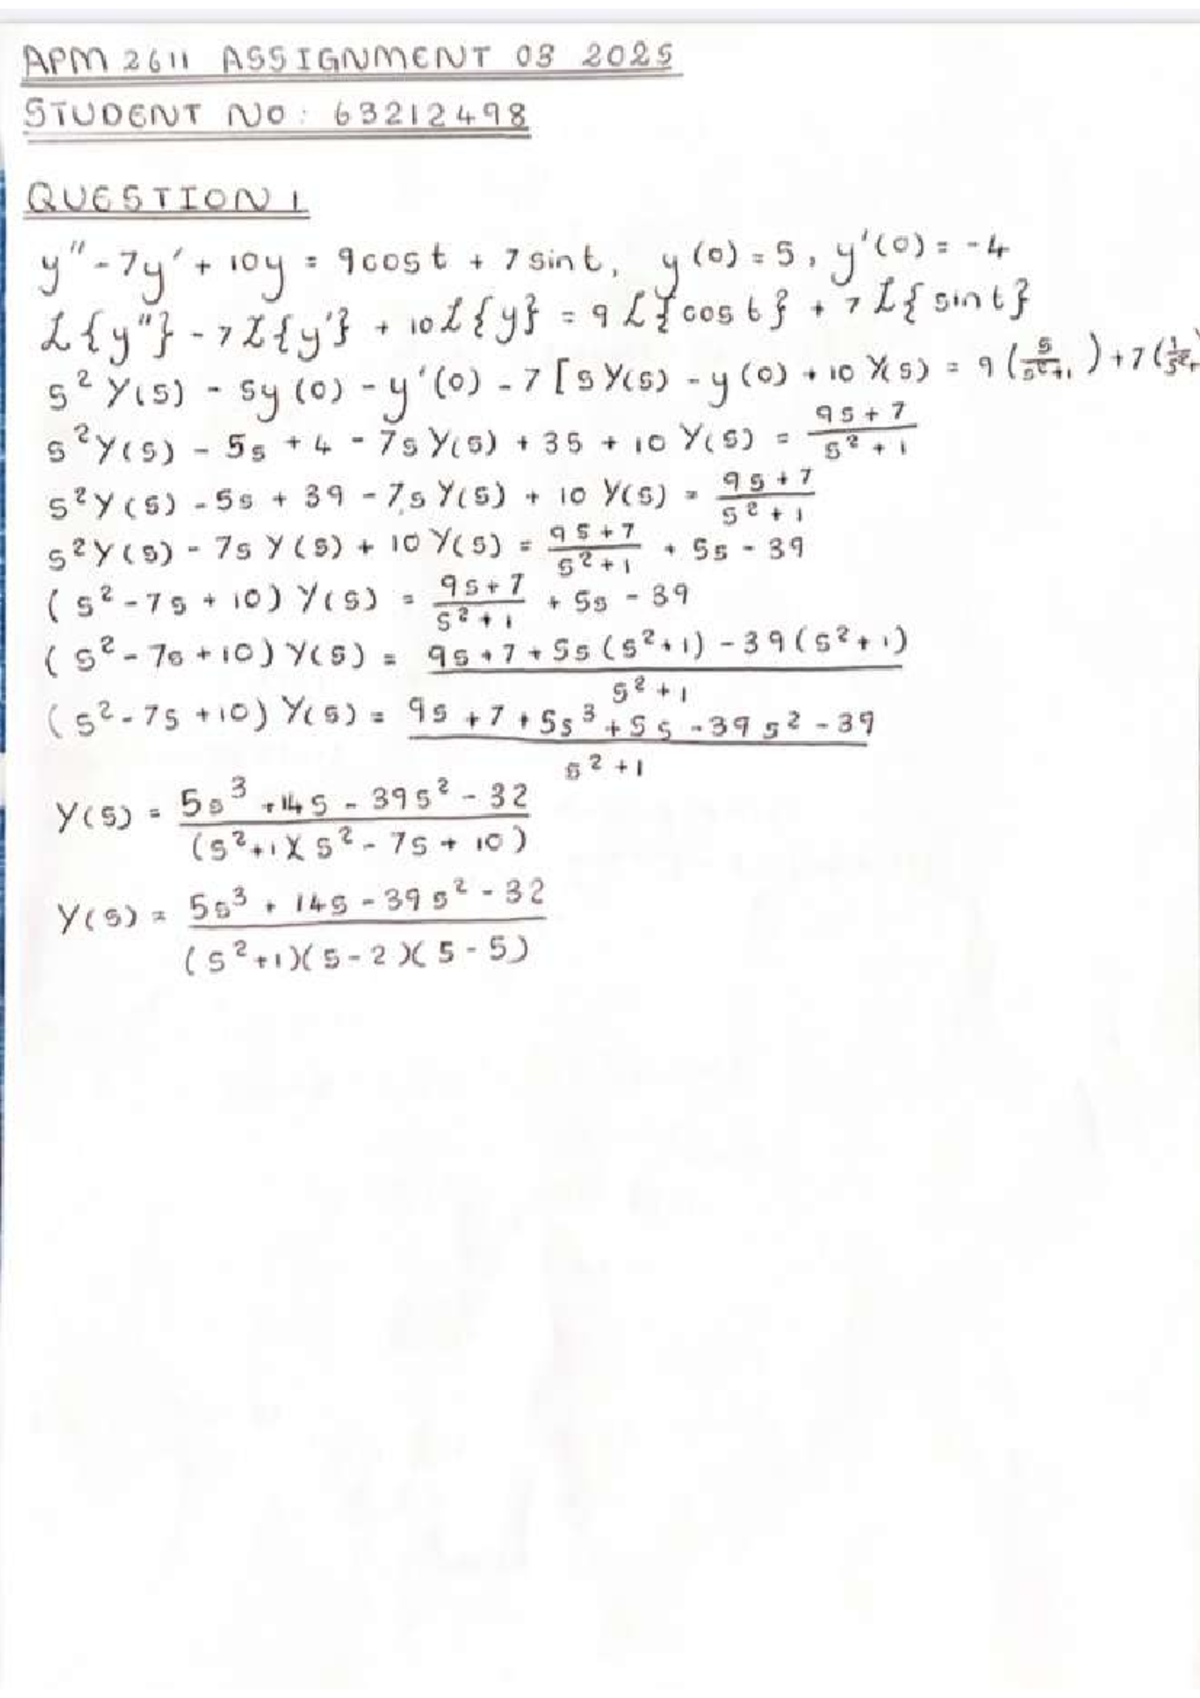 APM 2611 ASSIGNMENT 03 2025
STUDENT NO: 63212498
QUESTION 1
y'' - 7y' + 10y = 9cost + 7sint, y(0) = 5, y'(0) = -4
ℒ{y''} - 7ℒ{y'} + 10ℒ{y} = 9ℒ{cost} + 7ℒ{sint}
s²Y(s) - sy(0) - y'(0) - 7[sY(s) - y(0) + 10Y(s) = 9(s/(s²+1)) + 7(1/s²+
s²Y(s) - 5s + 4 - 7sY(s) + 35 + 10Y(s) = (9s+7)/(s²+1)
s²Y(s) - 5s + 39 - 7sY(s) + 10Y(s) = (9s+7)/(s²+1)
s²Y(s) - 7sY(s) + 10Y(s) = (9s+7)/(s²+1) + 5s - 39
(s² - 7s + 10)Y(s) = (9s+7)/(s²+1) + 5s - 39
(s² - 7s + 10)Y(s) = (9s+7+5s(s²+1) - 39(s²+1))/(s²+1)
(s² - 7s + 10)Y(s) = (9s+7+5s³+5s-39s²-39)/(s²+1)
Y(s) = (5s³+14s-39s²-32)/((s²+1)(s²-7s+10))
Y(s) = (5s³+14s-39s²-32)/((s²+1)(s-2)(s-5))